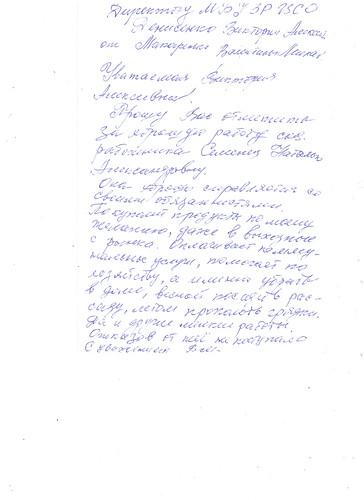 Директору МБУ ЗР ЦСО
Денисенко Виктории Алексе
от Макаренко
Уважаемая Виктория
Алексеевна!
Прошу Вас отметить
За хорошую работу соц.
работника Семенец Наталью
Александровну.
Она хорошо справляется со
своими обязанностями.
Покупает продукты по моему
желанию, даже в выходные
с рынка. Оплачивает комму-
нальные услуги, помогает по
хозяйству, а именно убрать
в доме, весной посадить рас-
саду, летом прополоть грядки.
Да и другие мелкие работы.
Отказов от неё не поступало
С уважением